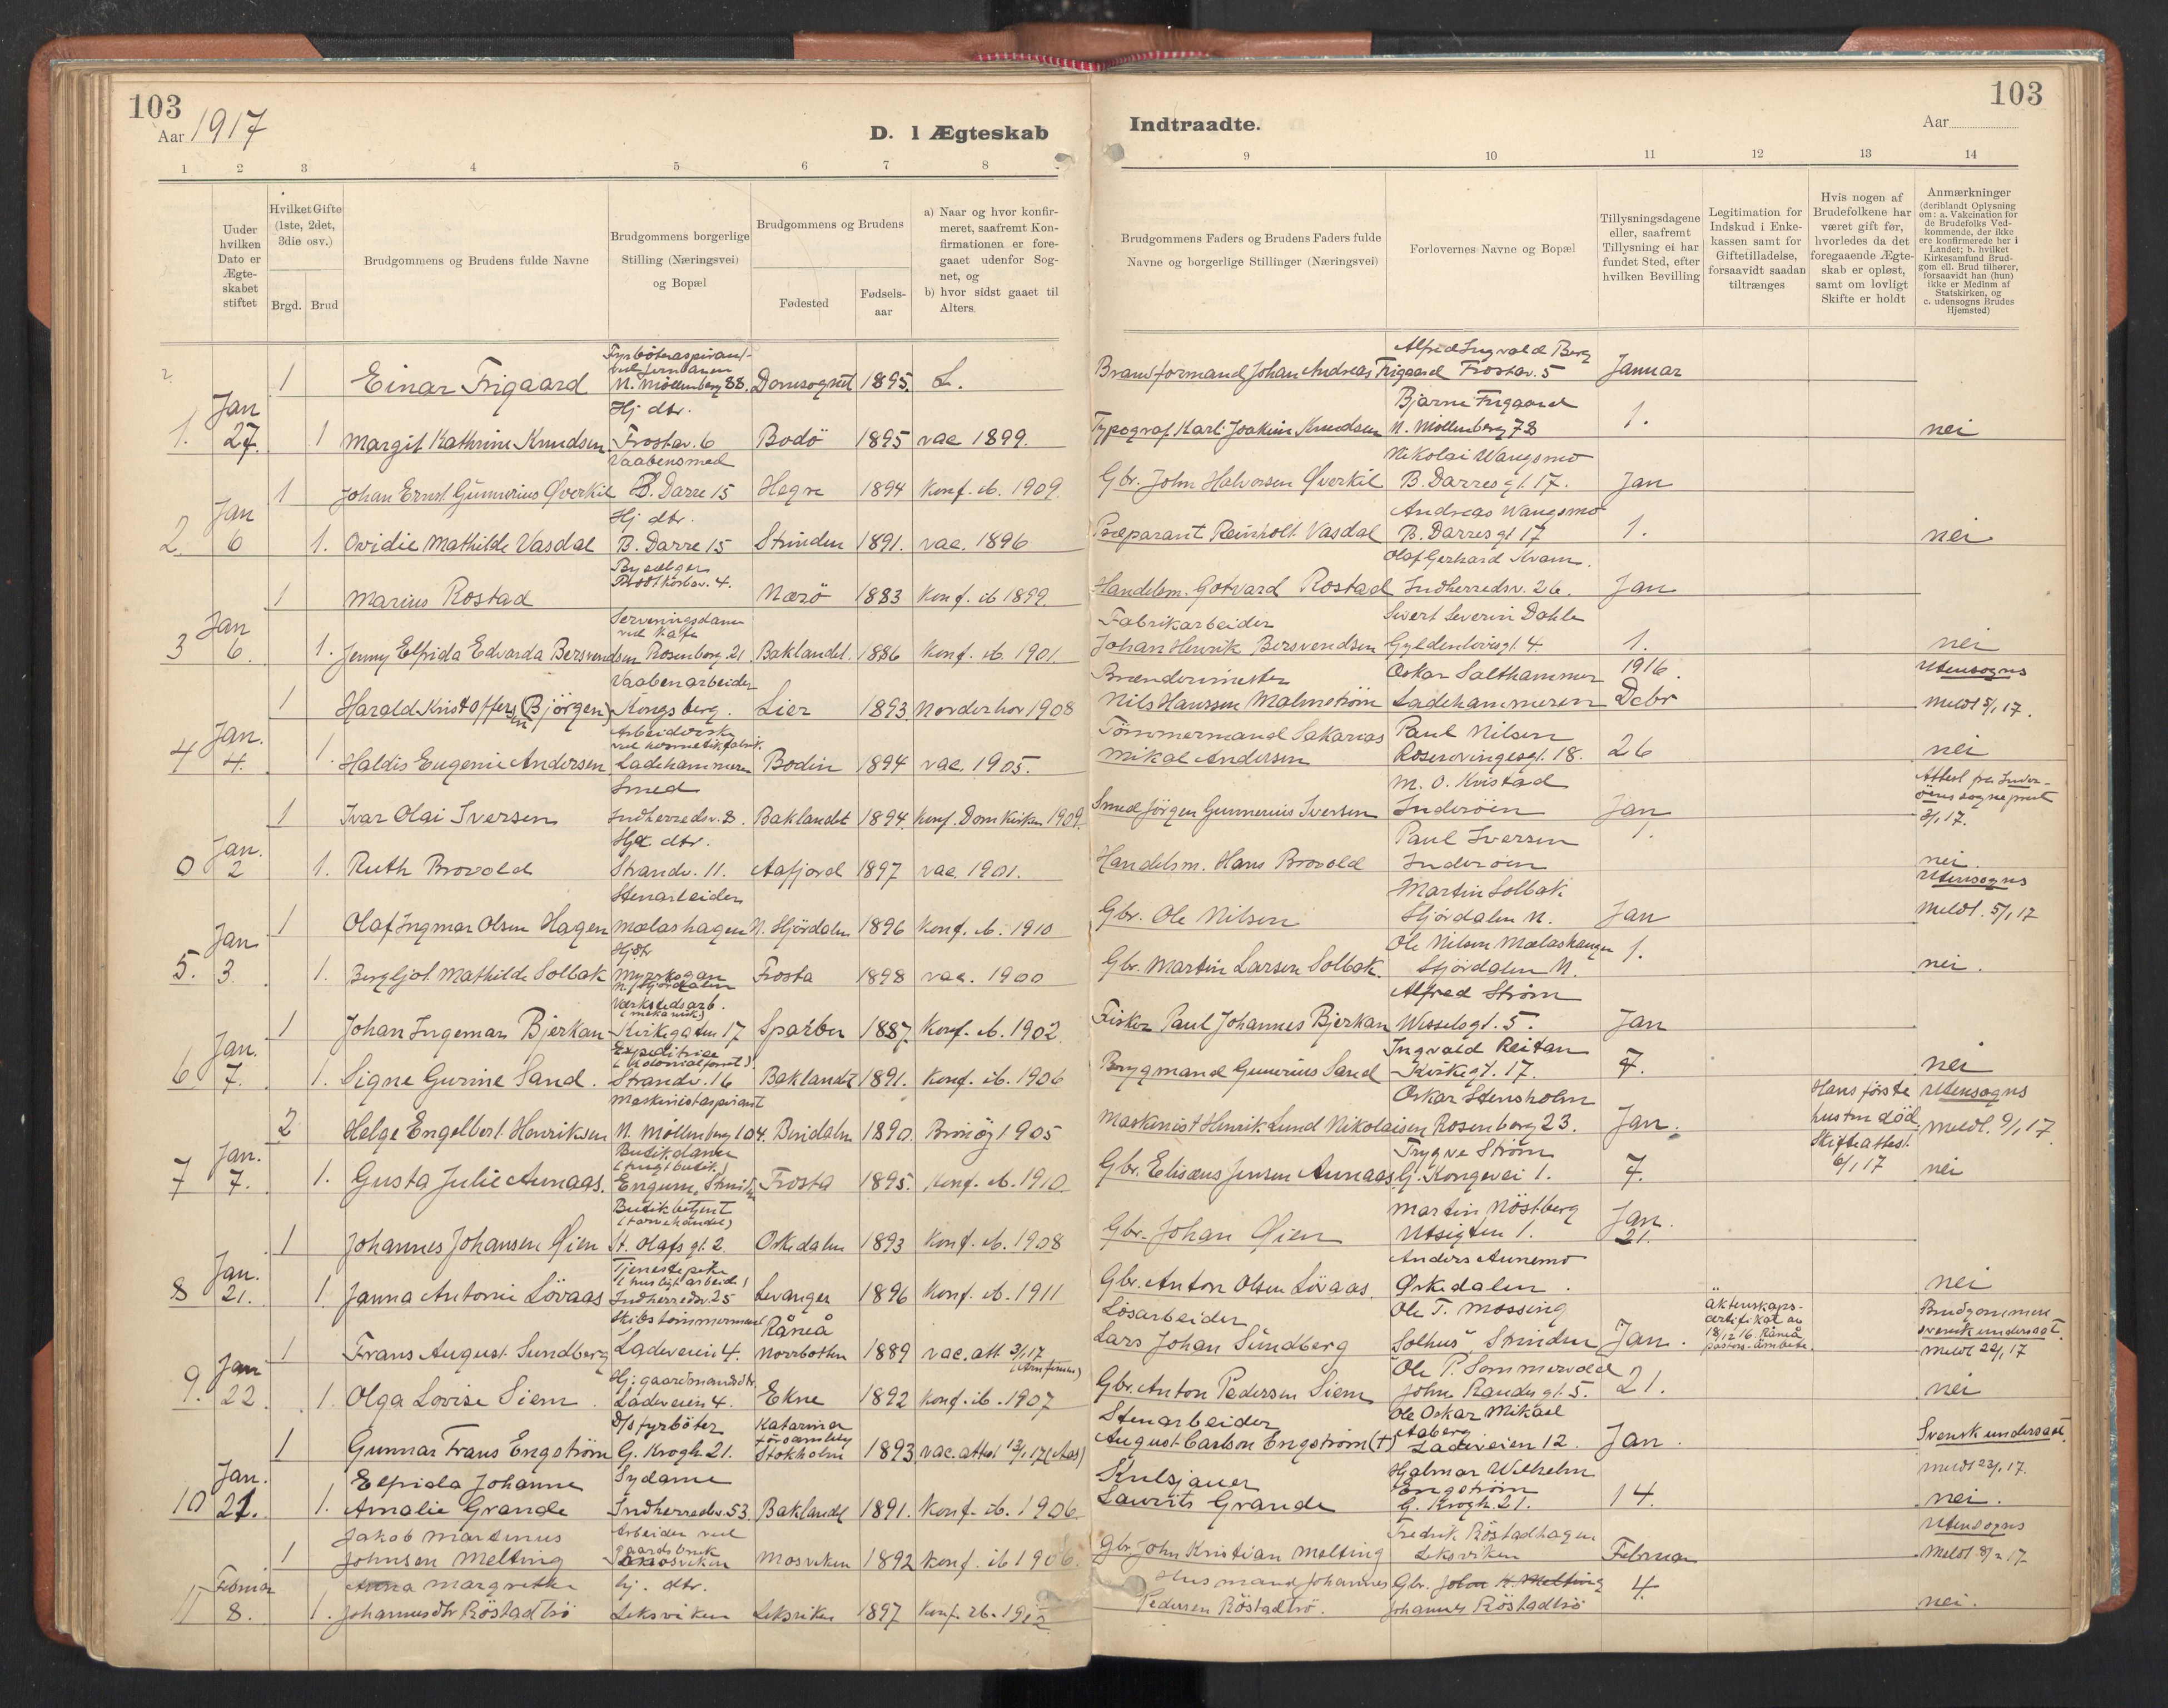 103
Aar 1917
D. I Ægteskab
1 2 3 4 5 6 7 8
Uuder hvilken Dato er Ægte-skabet stiftet
Hvilket Gifte (1ste, 2det, 3die osv.)
Brgd. Brud
Brudgommens og Brudens fulde Navne
Brudgommens borgerlige Stilling (Næringsvei) og Bopæl
Brudgommens og Brudens
Fødested
Fødsels-aar
a) Naar og hvor konfir-
meret, saafremt Kon-
firmationen er fore-
gaaet udenfor Sog-
net, og
b) hvor sidst gaaet til
Alters.
Indtraadte.
103
Aar
9 10 11 12 13 14
Brudgommens Faders og Brudens Faders fulde
Navne og borgerlige Stillinger (Næringsvei)
Forlovernes Navne og Bopæl
Tillysningsdagene
eller, saafremt
Tillysning ei har
fundet Sted, efter
hvilken Bevilling
Legitimation for
Indskud i Enke-
kassen samt for
Giftetilladelse,
forsaavidt saadan
tiltrænges
Hvis nogen af
Brudefolkene har
været gift før,
hvorledes da det
foregaaende Ægte-
skab er opløst,
samt om lovligt
Skifte er holdt
Anmærkninger
(deriblandt Oplysning
om: a. Vakcination for
de Brudefolks Ved-
kommende, der ikke
ere konfirmerede her i
Landet; b. hvilket
Kirkesamfund Brud-
gom ell. Brud tilhører,
forsaavidt han (hun)
ikke er Medlm af
Statskirken, og
c. udensogns Brudes
Hjemsted)
Fyrbøteraspirant
ved Jernbanen
1 Einar Frigaard N. Møllenberg 88. Domsognet 1895. L.
Jan
Hj. dtr.
1. 27. 1 Margit Kathrine Knudsen Frostav. 6 Bodö 1895 vac 1899.
Vaabensmed
1 Johan Ernst Gunnerius Øverkil B. Darre 15 Hegne 1894 Konf. ib. 1909.
Jan
Hj. dtr.
2. 6 1. Ovidie Mathilde Vasdal B. Darre 15 Strinden 1891. vac. 1896
Bysælger
1 Marius Rostad 4. Nærö 1883 Konf. ib 1899.
Jan
Serveringsdame
ved Kafe
3 6. 1. Jenny Elfrida Edvarda Bersvendsen Rosenborg. 21. Baklandet. 1886 Konf. ib. 1901.
Vaabenarbeider
1 Harald Kristoffersen (Bjørgen) Kongsberg. Lier 1893 Norderhov 1908
Jan.
Arbeiderske
ved hermetikfabrik.
4 4. 1. Haldis Eugenie Andersen Ladehammeren Bodin 1894 vac. 1905.
Smed
1 Ivar Olai Iversen Indherredsv. 8. Baklandet 1894. Konf. Domkirken 1909.
Jan.
Hj. dtr.
0 2 1. Ruth Brovold Strandv. 11. Aafjord 1897 vac. 1901.
Stenarbeider
1 Olaf Ingmar Olsen Hagen Mælashagen N. Stjørdalen 1896 Konf. ib. 1910
Jan
Hj dtr
5. 3 1. Bergljot Mathilde Solbak Myrskogan Frosta 1898 vac. 1900
N. Stjørdalen
Værkstedsarb.
(mekanisk)
1 Johan Ingemar Bjerkan Kirkegaten 17 Sparbu 1887. Konf. ib. 1902.
Jan.
Expeditrice
6. 7. 1. Signe Gurine Sand. Strandv. 16 Baklandt 1891. Konf. ib. 1906
Maskinistaspirant
2 Helge Engelbert Henriksen N. Møllenberg 104. Bindalen 1890. Brönöy 1905
Jan.
Butikdame
7 7. 1. Gusta Julie Aunaas. Frosta 1895. Konf. ib. 1910.
Butikbetjent
1 Johannes Johansen Øien St. Olafs gt. 2. Orkedalen 1893 Konf. ib. 1908
Jan.
Tjenestepike
(husligt arbeide)
8 21. 1. Janna Antonie Lövaas Indherredsv. 25 Levanger 1896 Konf. ib. 1911
Skibstömmermand Råneå
1 Frans August Sundberg Ladeveien 4. Norrbotten 1889 vac. att 3/1 17
Jan
Hj. gaardmandsdtr.
9. 22. 1. Olga Lovise Siem Ladeveien 4. Ekne 1892 Konf. ib. 1907
D/s fyrbøter Katarina
1 Gunnar Frans Engström G. Krogh 21. Stokholm 1893. vac. attest 13/1 17 (Aas)
Jan. Elfrida Johanne Sydame
10 21. 1. Amalie Grande Indherredsv. 53 Baklandet 1891. Konf. ib. 1906.
Jakob Martinus Arbeider ved
gaardsbruk
1 Johnsen Melting Mosviken Mosviken 1892 Konf. ib 1906.
Februar Anna Margrethe hj. dtr.
11 8. 1. Johannesdtr Röstadtrø Leksviken Leksviken 1897
Alfred Ingvald Berg
Brandformand Johan Andreas Frigaard Frostav. 5 Januar
Bjarne Frigaard
Typograf Karl Joakim Knudsen N. Møllenberg 78 1. nei
Nikolai Wangsmo
Gbr. John Halvorsen Øverkil B. Darres gt. 17. Jan
Andreas Wangsmo
Præparant Reinholt Vasdal B. Darres gt 17 1. nei
Olaf Gerhard Kvam.
Handelsm. Gotvard Rostad Indherredsv. 26. Jan
Fabrikarbeider Sivert Severin Dahle
Johan Henrik Bersvendsen Gyldenløvesgt. 4 1. nei
Brændevinsmester Oskar Salthammer 1916. Utensogns
Nils Hanssen Malmstrøm Ladehammeren Dcbr Meldt 5/1 17.
Tömmermand Sakarias Paul Nilsen
Mikal Andersen Rosenvingesgt. 18. 26 nei
M. O. Kvistad Attest fra Inder-
öens sogneprest
Smed Jörgen Gunnerius Iversen Inderöen Jan 3/1 17.
Paul Iversen 1.
Handelsm. Hans Brovold Inderöen nei.
Martin Solbak Utensogns
Gbr. Ole Nilsen Stjördalen N. Jan Meldt. 5/1 17
Ole Nilsen Mælashaugen 1.
Gbr. Martin Larsen Solbak. Stjördalen N. nei.
Alfred Strøm
Fisker Paul Johannes Bjerkan Wesselsgt. 5. Jan
Ingvald Reitan
Brygmand Gunerius Sand Kirkegt. 17. 7. nei
Oskar Stensholm Hans første Utensogns
Maskinist Henrik Lund Nikolaisen Rosenborg 23. Jan. hustru død. Meldt. 9/1 17.
Trygve Strøm Skifteattest
Gbr. Elisæus Jensen Aunaas G. Kongevei 1. 7. 6/1 17 nei
Martin Nöstberg Jan.
Gbr. Johan Øien Utsigten 1. 21.
Anders Aunemo
Gbr. Anton Olsen Lövaas. Orkedalen. nei
Lösarbeider Ole T. Mossing äktenskaps- Brudgommen
certifikat av svensk undersaat.
Lars Johan Sundberg Solhus, Strinden Jan. 18/12 16. Råneå Meldt 22/1 17
pastors-ämbete.
Ole P. Sommervold
Gbr. Anton Pedersen Siem John Randes gt. 5. 21. nei
Stenarbeider Ole Oskar Mikael
Aaberg
August Carlson Engström (†) Ladeveien 12. Jan. Svensk undersaat.
Kulsjauer Hjalmar Wilhelm Meldt 23/1 17.
Engström
Laurits Grande G. Krogh. 21. 14. nei.
Fredrik Röstadhagen Utensogns
Gbr. John Kristian Melting Leksviken Februar Meldt 8/2 17
Husmand Johannes Gbr. John K. Melting 4.
Pedersen Röstadtrö. Johannes Röstadtrö nei.